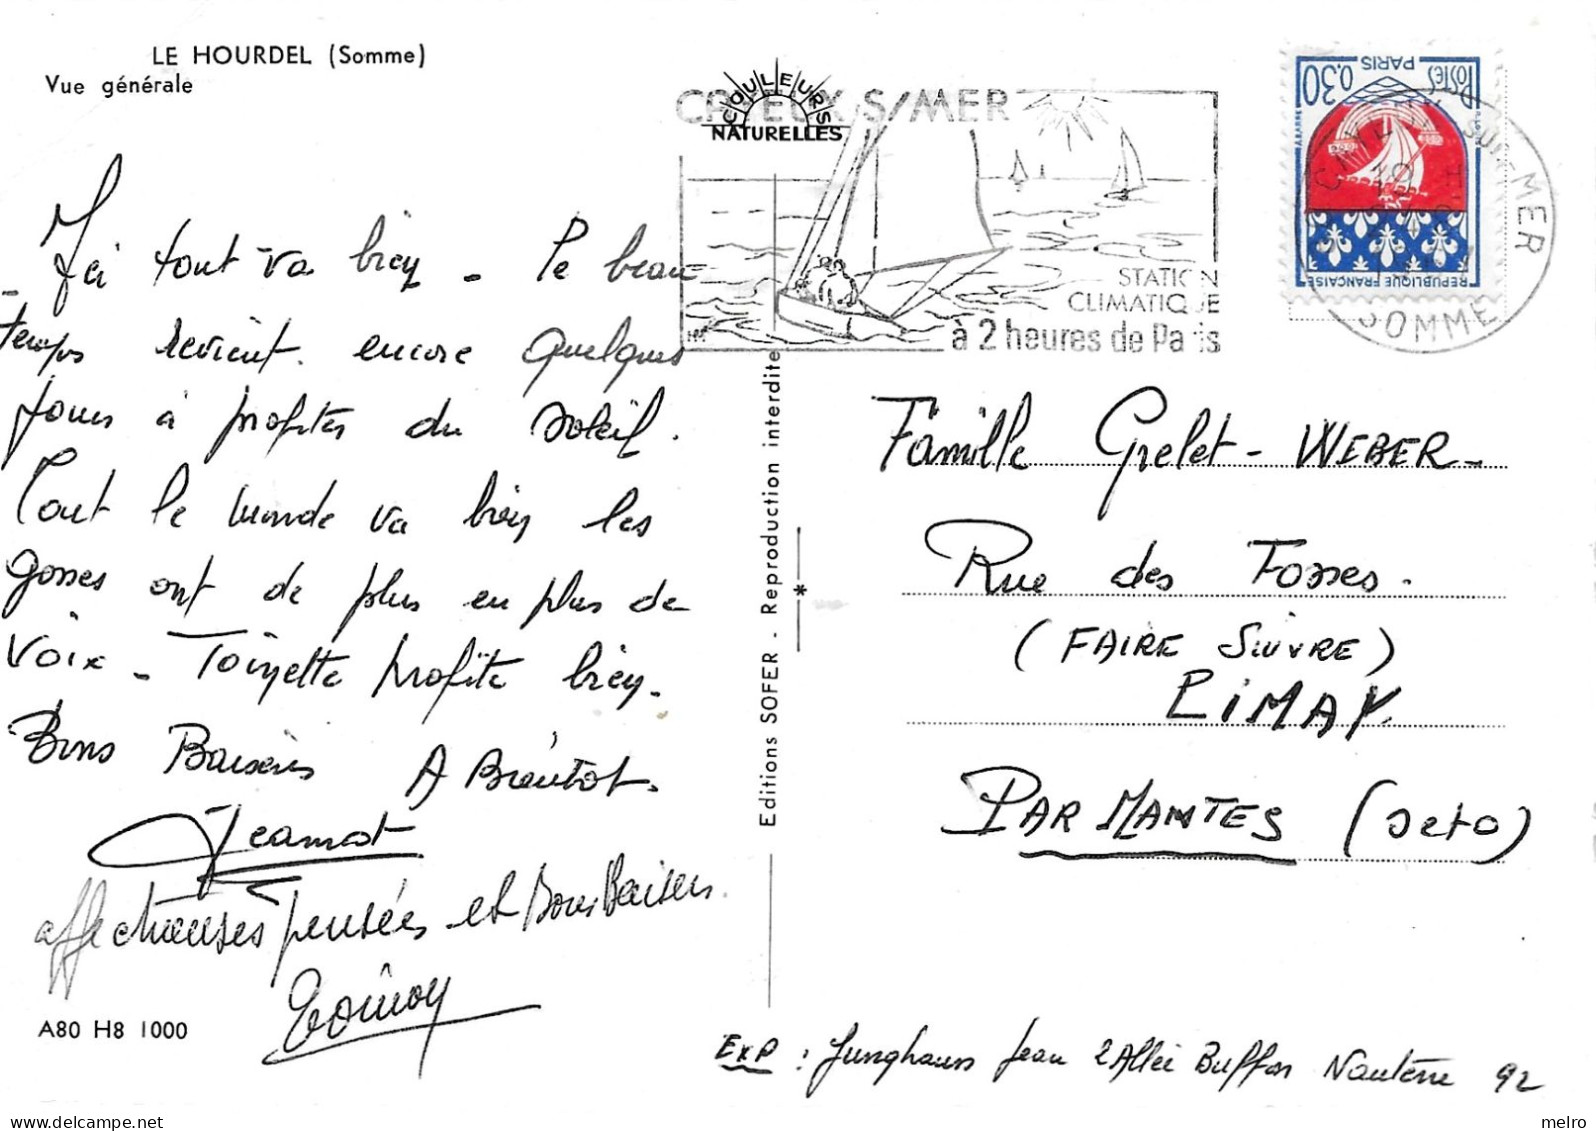 LE HOURDEL (Somme)
Vue générale
COULEURS
NATURELLES
CAYEUX S/MER
STATION
CLIMATIQUE
à 2 heures de Paris
POSTES PARIS 0,30
REPUBLIQUE FRANÇAISE
CAYEUX SUR MER
SOMME
Ici tout va bien - le beau
temps revient. encore quelques
jours à profiter du soleil.
Tout le monde va bien les
gosses ont de plus en plus de
voix - Toinette profite bien.
Bons Baisers A Bientot.
Jeannot
affectueuses pensées et Bons Baisers.
A80 H8 1000
Editions SOFER - Reproduction interdite
Famille Grelet - WEBER -
Rue des Fosses.
(FAIRE SUIVRE)
LIMAY
PAR MANTES (Seto)
EXP : Junghaus Jean 2 Allée Buffon Nanterre 92
melro